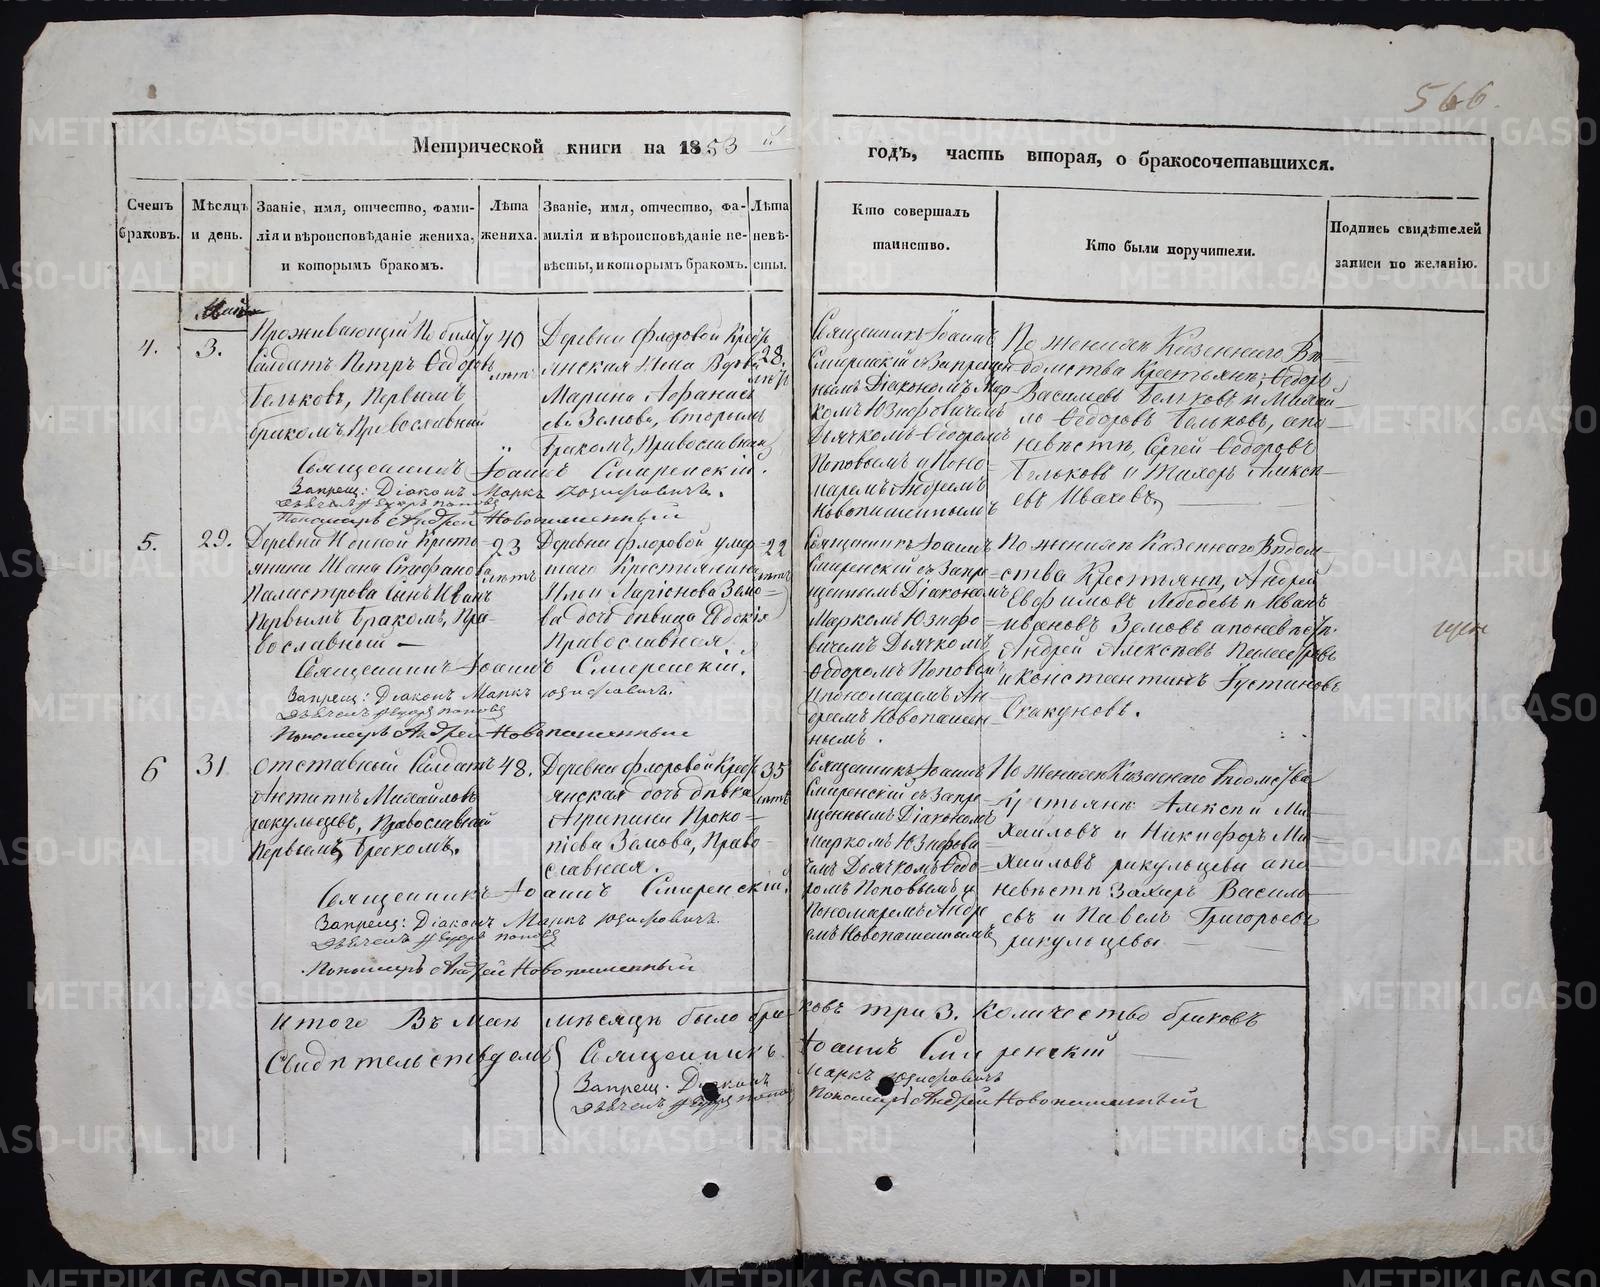 566.
Метрической книги на 1853 й
годъ, часть вторая, о бракосочетавшихся.
Счетъ браковъ.
Мѣсяцъ и день.
Званіе, имя, отчество, фами-
лія и вѣроисповѣданіе жениха,
и которымъ бракомъ.
Лѣта
жениха.
Званіе, имя, отчество, фа-
милія и вѣроисповѣданіе не-
вѣсты, и которымъ бракомъ.
Лѣта
невѣ-
сты.
Кто совершалъ
таинство.
Кто были поручители.
Подпись свидѣтелей
записи по желанію.
Май
4.
3.
Проживающій По билету
Солдатъ Петръ Ѳедоровъ
Бельковъ, Первымъ
бракомъ, Православный
40
лѣтъ
Деревни Флоровой Кресть
янская Жена Вдова
Марина Афанась
ева Земова, вторымъ
бракомъ, Православная
28.
лѣтъ
Священникъ Іоаннъ
Смиренскій съ Запрещен
нымъ Діакономъ Мар
комъ Юзефовичемъ
Дьячкомъ Ѳедоромъ
Поповымъ и Поно-
маремъ Андреемъ
Новопашеннымъ
По женихѣ Казеннаго Вѣ-
домства Крестьяне, Ѳедоръ
Васильевъ Бельковъ и Михай-
ло Ѳедоровъ Бельковъ, а по-
невѣстѣ, Сергей Ѳедоровъ
Бельковъ и Алексѣ-
евъ
Священникъ Іоаннъ Смиренскій.
Запрещ: Діаконъ Маркъ Юзифовичъ.
Дьячекъ Ѳедоръ Поповъ
Пономарь Андрей Новопашенный
5.
29.
Деревни Кресть-
янина Ивана Стефанова
сынъ Иванъ
Первымъ бракомъ, Пра-
вославный —
23
лѣтъ
Деревни Флоровой умер-
шаго Крестьянина
Ильи Ларіонова Земо-
ва дочь дѣвица Евдокія
Православная.
22
лѣтъ
Священникъ Іоаннъ
Смиренскій съ Запре-
щеннымъ Діакономъ
Маркомъ Юзифо-
вичемъ Дьячкомъ
Ѳедоромъ Поповымъ
и пономаремъ Ан-
дреемъ Новопашен-
нымъ.
По женихѣ Казеннаго Вѣдом-
ства Крестьяне, Андрей
Евфимовъ Лебедевъ и Иванъ
Ивановъ Земовъ а по невѣстѣ.
Андрей Алексѣевъ
и Константинъ Іустиновъ
Скакуновъ.
Священникъ Іоаннъ Смиренскій.
Запрещ: Діаконъ Маркъ Юзифовичъ.
Дьячекъ Ѳедоръ Поповъ
Пономарь Андрей Новопашенный
6
31
Отставный Солдатъ
Антипъ Михайловъ
рякульцевъ, Православный
Первымъ бракомъ.
48.
Деревни Флоровой Кресть
янская дочь дѣвка
Агрипина Проко-
піева Земова, Право-
славная.
35
лѣтъ
Священникъ Іоаннъ
Смиренскій съ Запре-
щеннымъ Діакономъ
Маркомъ Юзифови
чемъ Дьячкомъ Ѳедо-
ромъ Поповымъ и
Пономаремъ Андре
емъ Новопашеннымъ
По женихѣ Казеннаго Вѣдомства
Крестьяне Алексѣй Ми-
хайловъ и Никифоръ Ми-
хайловъ рякульцевы а по
невѣстѣ Захаръ Василь-
евъ и Павелъ Григорьевъ
рякульцевы
Священникъ Іоаннъ Смиренскій.
Запрещ: Діаконъ Маркъ Юзифовичъ.
Дьячекъ Ѳедоръ Поповъ
Пономарь Андрей Новопашенный
Итого Въ Маѣ мѣсяцѣ было бра-ковъ три 3. Количество браковъ
Свидѣтельствуемъ Священникъ Іоаннъ Смиренскій
Запрещ. Діаконъ Маркъ Юзифовичъ
Дьячекъ Ѳедоръ Поповъ Пономарь Андрей Новопашенный
METRIKI.GASO-URAL.RU